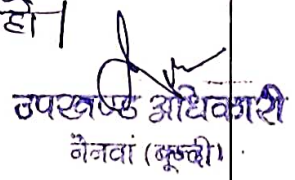 हो।
उपखण्ड अधिकारी
नैनवां (बून्दी)